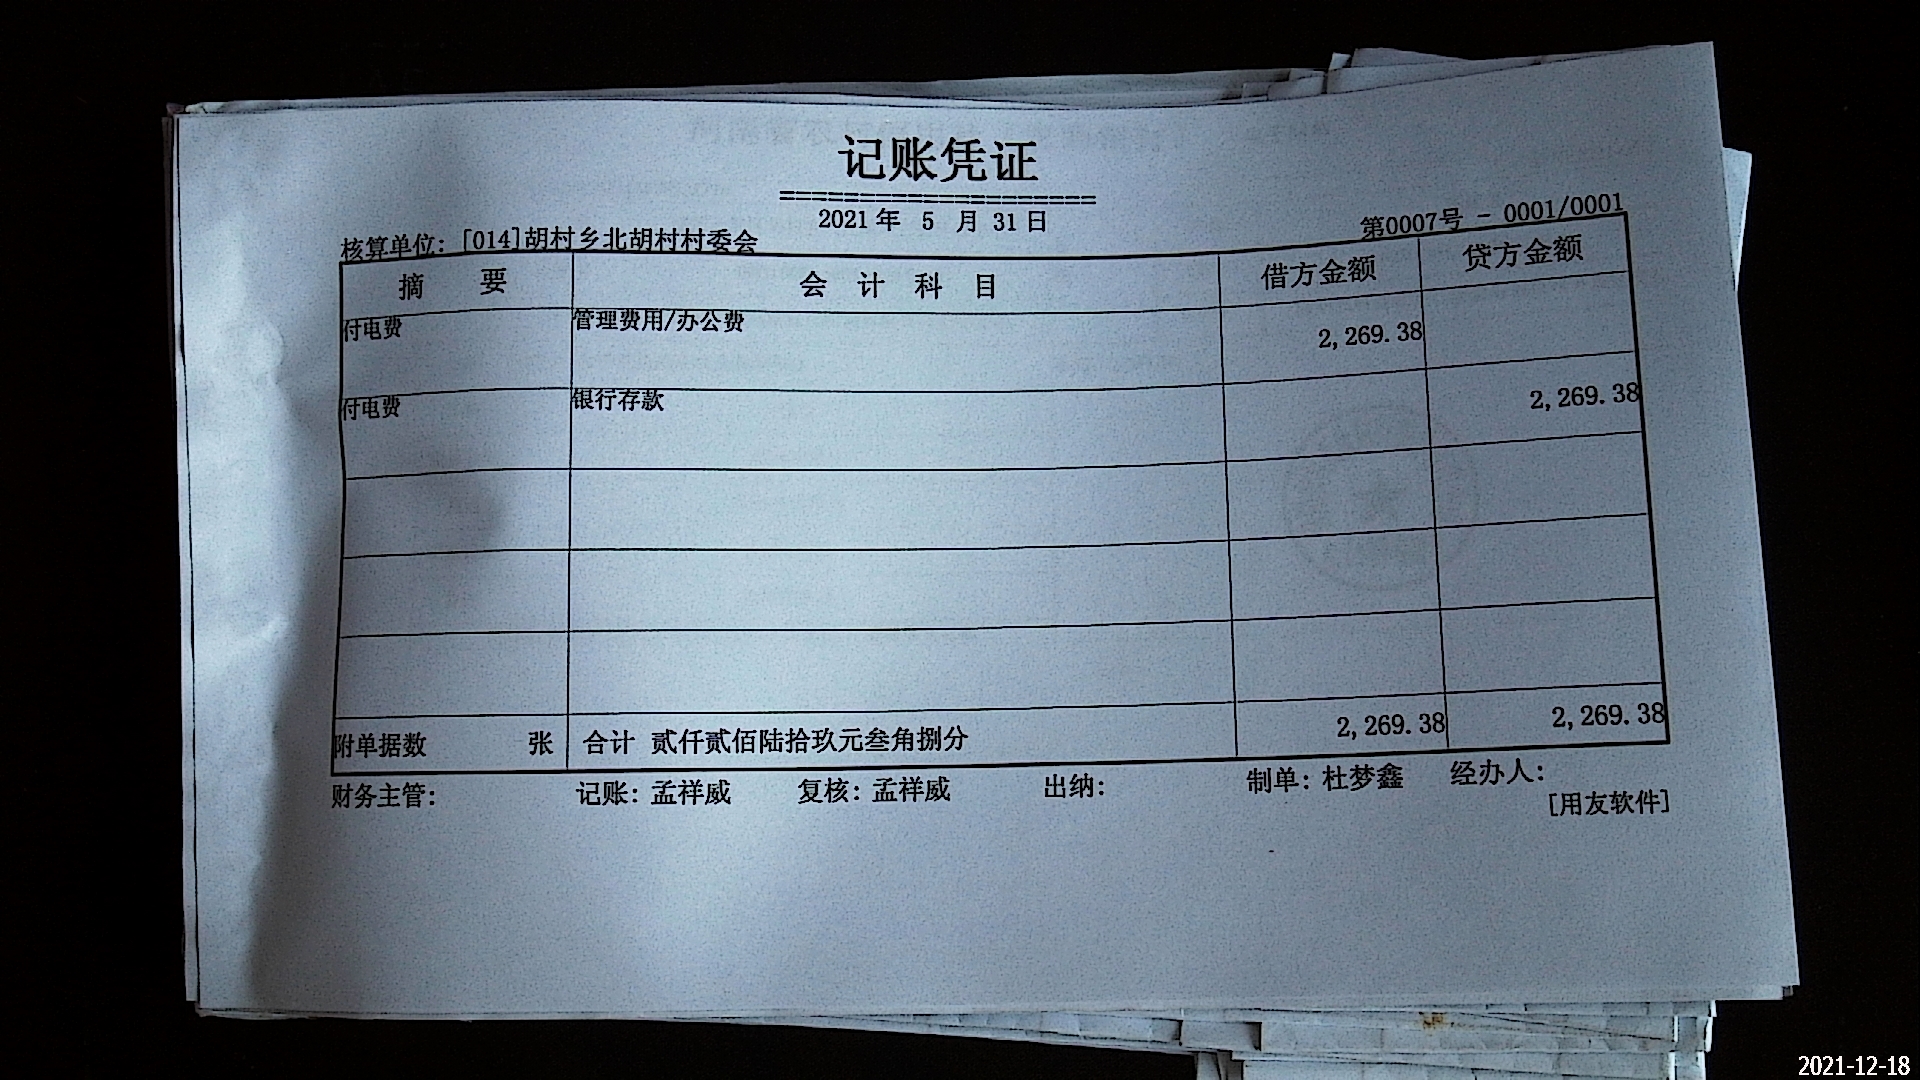 记账凭证
====================
2021 年 5 月 31 日
核算单位: [014]胡村乡北胡村村委会 第0007号 - 0001/0001
摘 要 会 计 科 目 借方金额 贷方金额
付电费 管理费用/办公费 2,269.38
付电费 银行存款 2,269.38
附单据数 张 合计 贰仟贰佰陆拾玖元叁角捌分 2,269.38 2,269.38
财务主管: 记账: 孟祥威 复核: 孟祥威 出纳: 制单: 杜梦鑫 经办人:
[用友软件]
2021-12-18